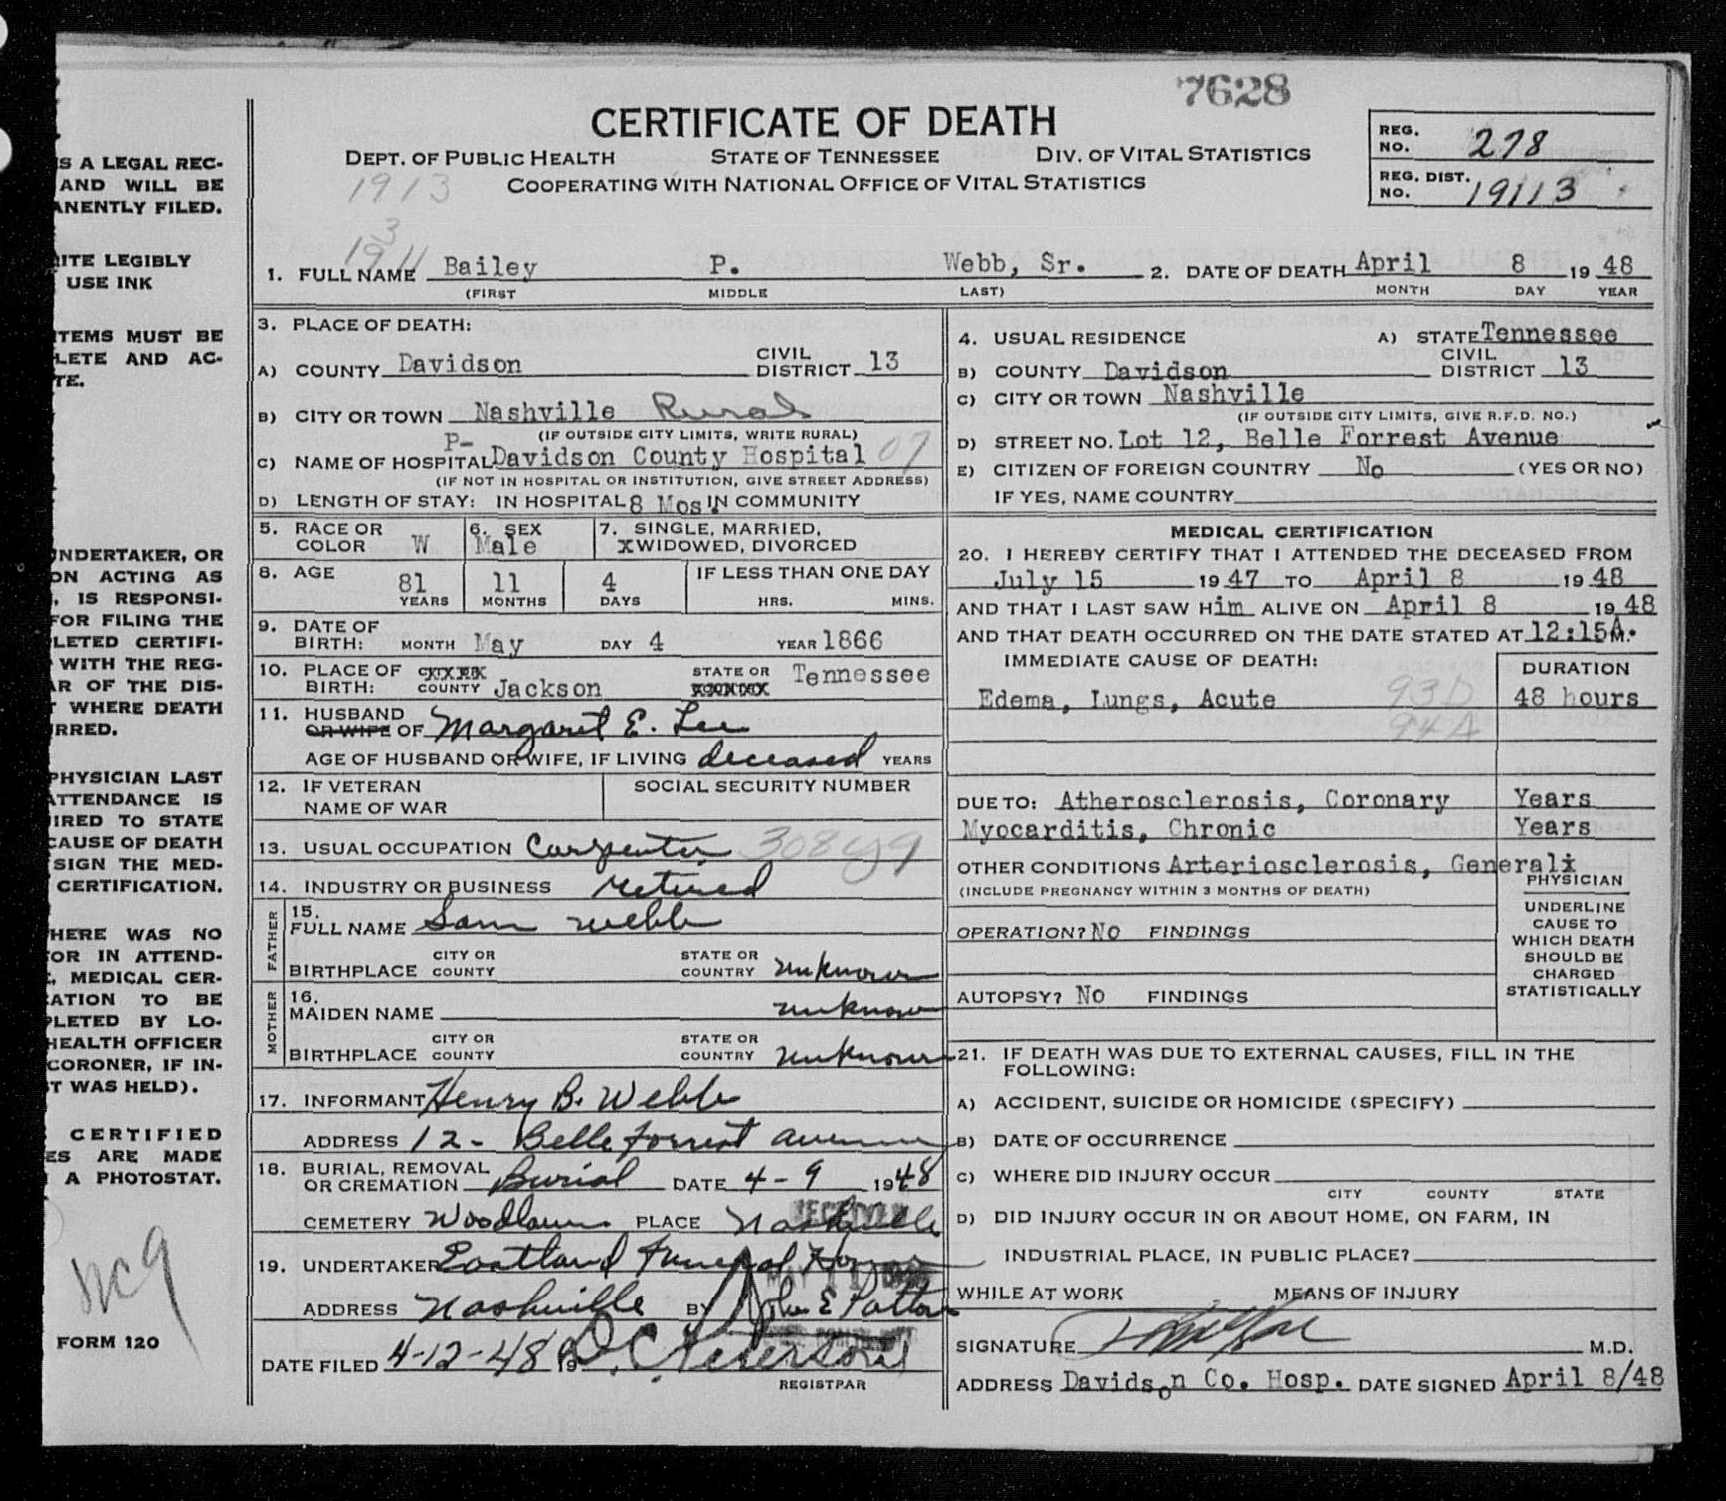 7628
CERTIFICATE OF DEATH
DEPT. OF PUBLIC HEALTH STATE OF TENNESSEE DIV. OF VITAL STATISTICS
COOPERATING WITH NATIONAL OFFICE OF VITAL STATISTICS
REG. NO. 278
REG. DIST. NO. 19113
1913
1. FULL NAME Bailey P. Webb, Sr. 2. DATE OF DEATH April 8 19 48
(FIRST MIDDLE LAST) MONTH DAY YEAR
3. PLACE OF DEATH:
A) COUNTY Davidson CIVIL DISTRICT 13
B) CITY OR TOWN Nashville Rural
(IF OUTSIDE CITY LIMITS, WRITE RURAL)
P-
C) NAME OF HOSPITAL Davidson County Hospital 07
(IF NOT IN HOSPITAL OR INSTITUTION, GIVE STREET ADDRESS)
D) LENGTH OF STAY: IN HOSPITAL 8 Mos. IN COMMUNITY
4. USUAL RESIDENCE A) STATE Tennessee
B) COUNTY Davidson CIVIL DISTRICT 13
C) CITY OR TOWN Nashville
(IF OUTSIDE CITY LIMITS, GIVE R.F.D. NO.)
D) STREET NO. Lot 12, Belle Forrest Avenue
E) CITIZEN OF FOREIGN COUNTRY No (YES OR NO)
IF YES, NAME COUNTRY
5. RACE OR COLOR W 6. SEX Male 7. SINGLE, MARRIED, XWIDOWED, DIVORCED
8. AGE 81 YEARS 11 MONTHS 4 DAYS IF LESS THAN ONE DAY HRS. MINS.
9. DATE OF BIRTH: MONTH May DAY 4 YEAR 1866
10. PLACE OF BIRTH: COUNTY Jackson STATE OR Tennessee
11. HUSBAND OR WIFE OF Margaret E. Lee
AGE OF HUSBAND OR WIFE, IF LIVING deceased YEARS
12. IF VETERAN NAME OF WAR SOCIAL SECURITY NUMBER
13. USUAL OCCUPATION Carpenter
14. INDUSTRY OR BUSINESS retired
FATHER
15. FULL NAME Sam Webb
BIRTHPLACE CITY OR COUNTY STATE OR COUNTRY unknown
MOTHER
16. MAIDEN NAME unknown
BIRTHPLACE CITY OR COUNTY STATE OR COUNTRY unknown
17. INFORMANT Henry B. Webb
ADDRESS 12- Belle Forrest Avenue
18. BURIAL, REMOVAL OR CREMATION Burial DATE 4-9 19 48
CEMETERY Woodlawn PLACE Nashville
19. UNDERTAKER Eastland Funeral Home
ADDRESS Nashville BY John E Patton
DATE FILED 4-12-48 19
REGISTRAR
MEDICAL CERTIFICATION
20. I HEREBY CERTIFY THAT I ATTENDED THE DECEASED FROM
July 15 19 47 TO April 8 19 48
AND THAT I LAST SAW Him ALIVE ON April 8 19 48
AND THAT DEATH OCCURRED ON THE DATE STATED AT 12:15 A.M.
IMMEDIATE CAUSE OF DEATH: DURATION
Edema, Lungs, Acute 93D 48 hours
94A
DUE TO: Atherosclerosis, Coronary Years
Myocarditis, Chronic Years
OTHER CONDITIONS Arteriosclerosis, General
(INCLUDE PREGNANCY WITHIN 3 MONTHS OF DEATH)
PHYSICIAN
UNDERLINE
CAUSE TO
WHICH DEATH
SHOULD BE
CHARGED
STATISTICALLY
OPERATION? No FINDINGS
AUTOPSY? No FINDINGS
21. IF DEATH WAS DUE TO EXTERNAL CAUSES, FILL IN THE
FOLLOWING:
A) ACCIDENT, SUICIDE OR HOMICIDE (SPECIFY)
B) DATE OF OCCURRENCE
C) WHERE DID INJURY OCCUR
CITY COUNTY STATE
D) DID INJURY OCCUR IN OR ABOUT HOME, ON FARM, IN
INDUSTRIAL PLACE, IN PUBLIC PLACE?
WHILE AT WORK MEANS OF INJURY
SIGNATURE M.D.
ADDRESS Davidson Co. Hosp. DATE SIGNED April 8/48
S A LEGAL REC-
AND WILL BE
ANENTLY FILED.
ITE LEGIBLY
USE INK
ITEMS MUST BE
LETE AND AC-
TE.
UNDERTAKER, OR
ON ACTING AS
, IS RESPONSI-
FOR FILING THE
LETED CERTIFI-
WITH THE REG-
AR OF THE DIS-
T WHERE DEATH
RRED.
PHYSICIAN LAST
ATTENDANCE IS
IRED TO STATE
CAUSE OF DEATH
SIGN THE MED-
CERTIFICATION.
HERE WAS NO
OR IN ATTEND-
, MEDICAL CER-
ATION TO BE
PLETED BY LO-
HEALTH OFFICER
CORONER, IF IN-
T WAS HELD).
CERTIFIED
ES ARE MADE
A PHOTOSTAT.
FORM 120